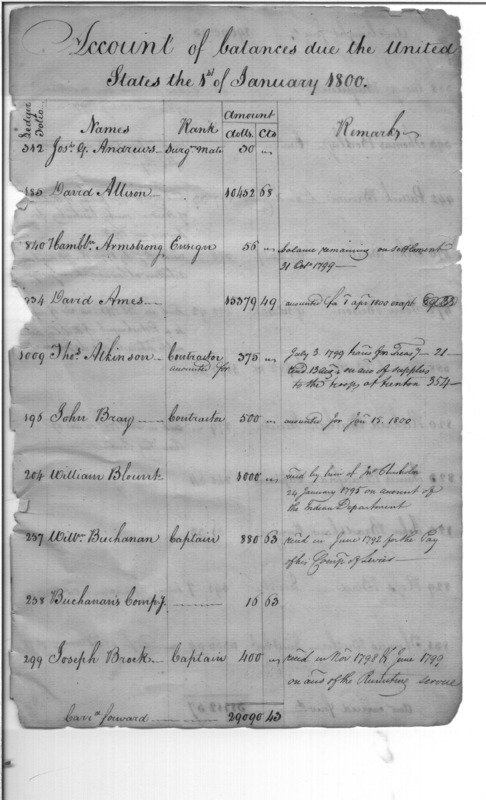 Account of balances due the United
States the 1st of January 1800.
Ledger Folio Names Rank Amount dolls. Cts Remarks
312 Jos. G. Andrews Surgn Mate 30 "
185 David Allison 10452 68
840 Hambln Armstrong Ensign 56 " balance remaining on settlement
31 Octr 1799
234 David Ames 15379 49 accounted fr 1 apr 1800 except 59.33
1009 Thos. Atkinson Contractor 375 " July 3. 1799 from Treasy 21
accounted for on acco of supplies
to the troops at trenton 354
195 John Bray Contractor 500 " accounted for Jany 15. 1800
204 William Blount 1000 " by
24 January 1795 on account of
the Indian Department
257 Willm Buchanan Captain 880 63 recd in June 1792 for the Pay
of his Compy of Levies
258 Buchanan's Compy. 16 63
299 Joseph Brock Captain 400 " recd in Novr 1798 & June 1799
on acco of the Recruiting service
Carrd forward 29090 43